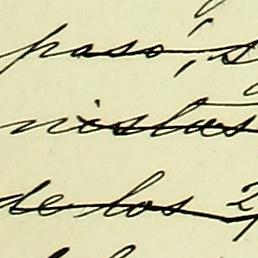 paso, s
nistas
de los 2